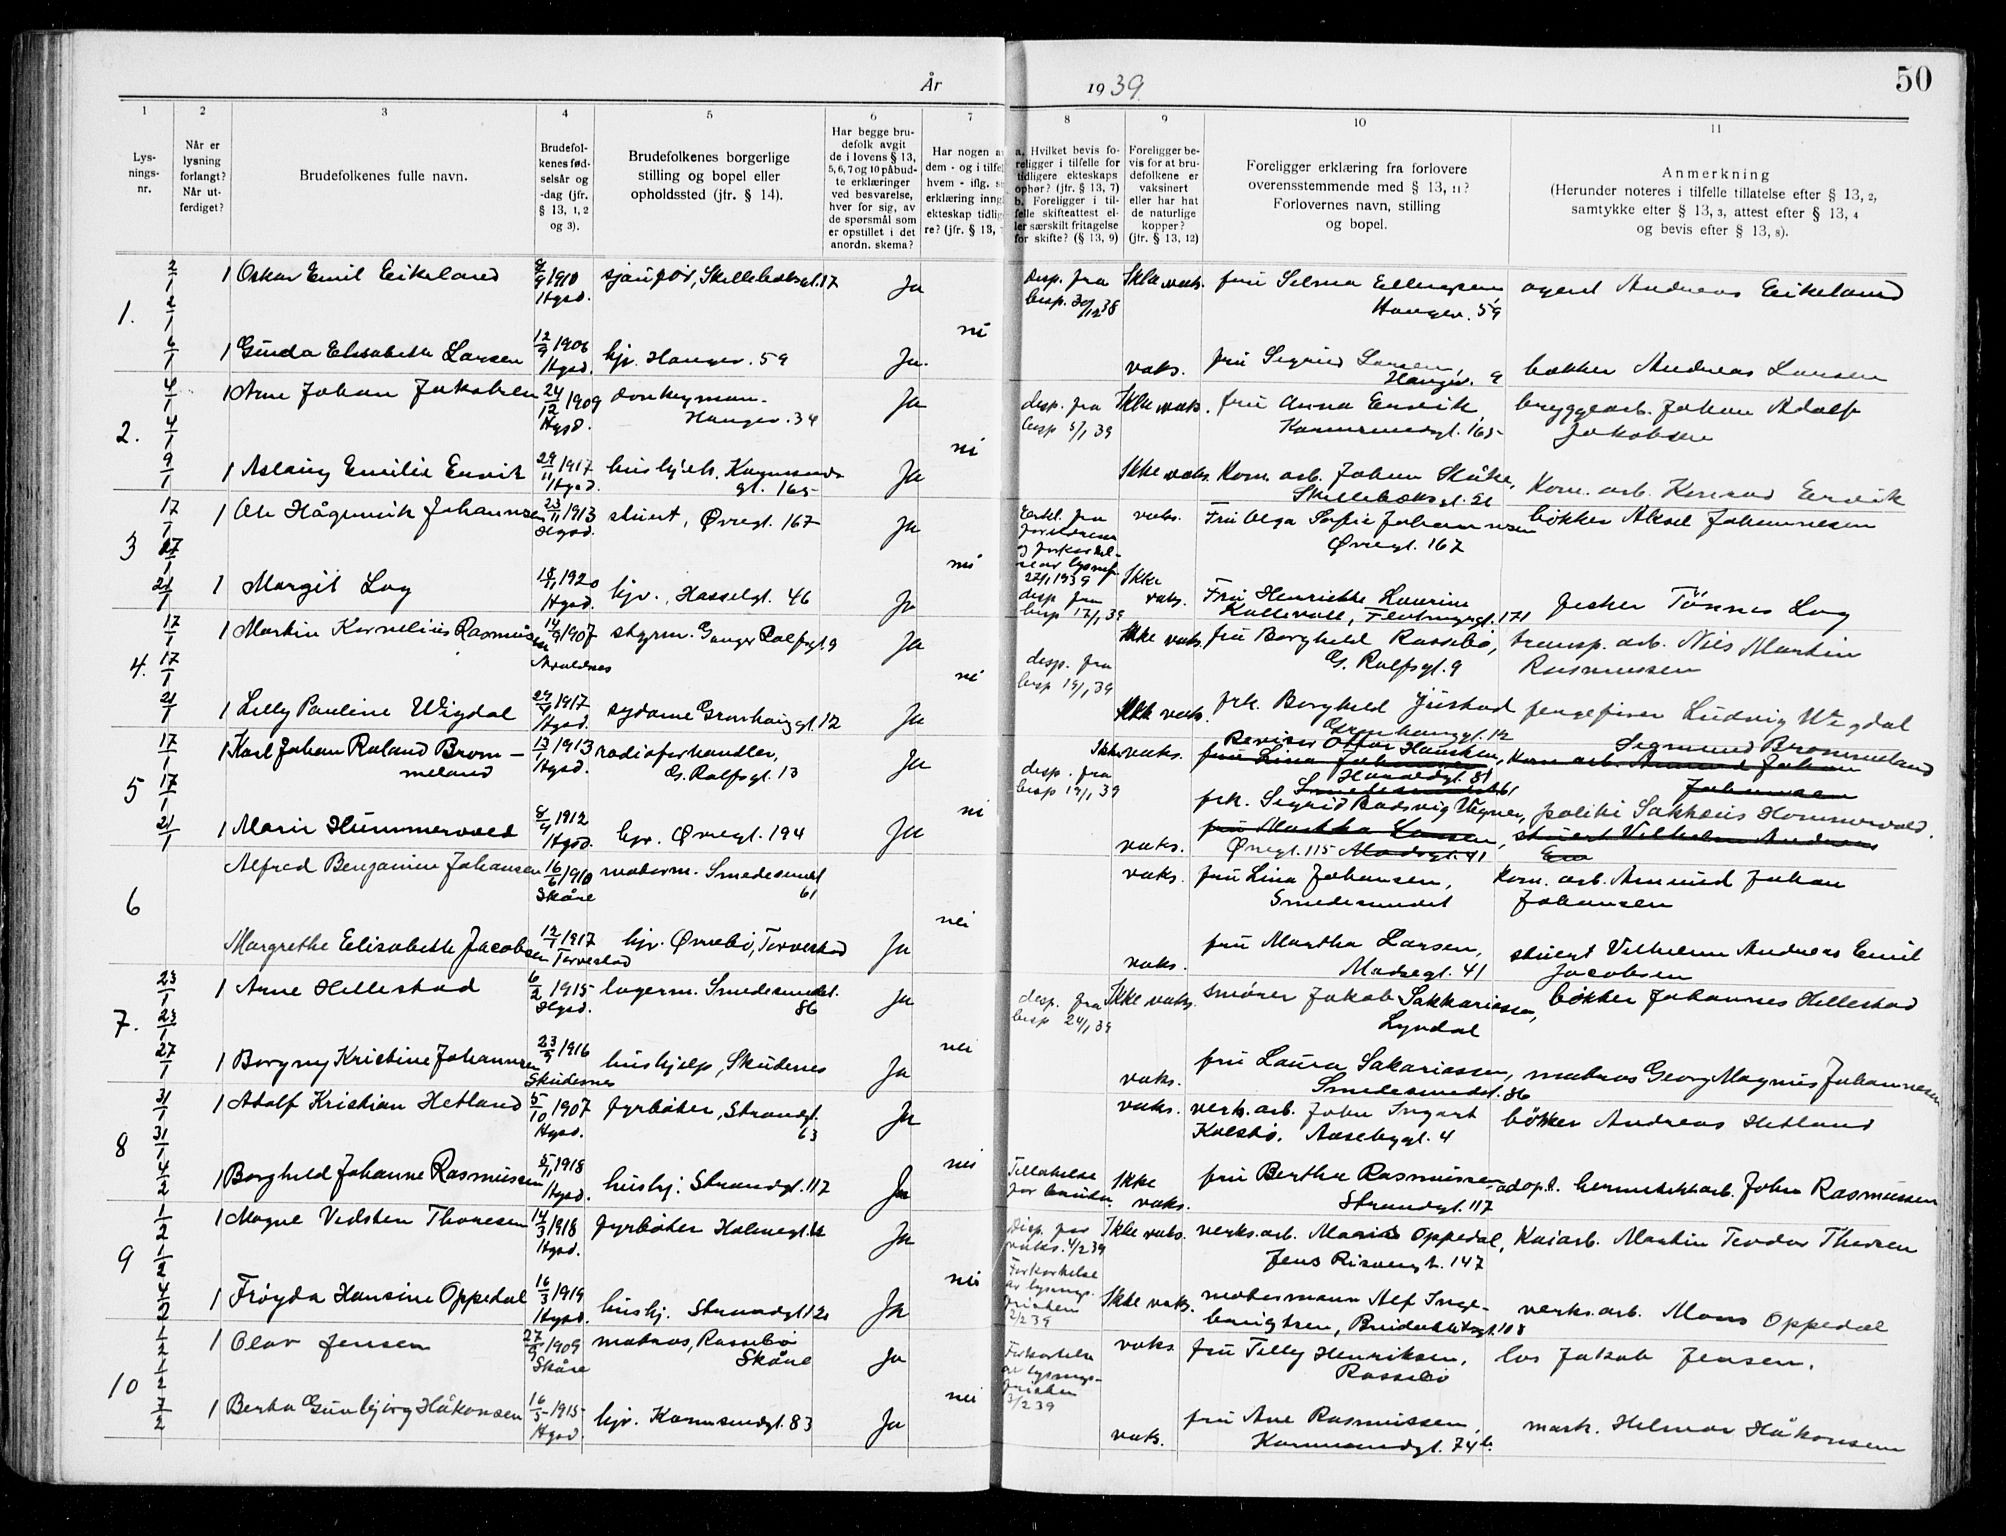 År 1939
50
1 2 3 4 5 6 7 8 9 10 11
Lys-
nings-
nr.
Når er
lysning
forlangt?
Når ut-
ferdiget?
Brudefolkenes fulle navn.
Brudefol-
kenes fød-
selsår og
-dag (jfr.
§ 13, 1, 2
og 3).
Brudefolkenes borgerlige
stilling og bopel eller
opholdssted (jfr. § 14).
Har begge bru-
defolk avgit
de i lovens § 13,
5, 6, 7 og 10 påbud-
te erklæringer
ved besvarelse,
hver for sig, av
de spørsmål som
er opstillet i det
anordn. skema?
Har nogen a
dem - og i tilfel
hvem - iflg.
erklæring inng
ekteskap tidlig
re? (jfr. § 13,
a. Hvilket bevis fo-
religger i tilfelle for
tidligere ekteskaps
ophør? (jfr. § 13, 7)
b. Foreligger i til-
felle skifteattest el-
ler særskilt fritagelse
for skifte? (§ 13, 9)
Foreligger be-
vis for at bru-
defolkene er
vaksinert
eller har hat
de naturlige
kopper?
(jfr. § 13, 12)
Foreligger erklæring fra forlovere
overensstemmende med § 13, 11?
Forlovernes navn, stilling
og bopel.
Anmerkning
(Herunder noteres i tilfelle tillatelse efter § 13, 2,
samtykke efter § 13, 3, attest efter § 13, 4
og bevis efter § 13, 8).
1. 2/1 2/1 6/1
1 Oskar Emil Eikeland 8/9 1910 Hgsd. sjåufør, Skillebæksgt. 17 Ja Disp. fra besp. 30/12 38 Ikke vaks. fru Selma Ellingsen, Hauger. 59 agent Andreas Eikeland
nei
1 Gunda Elisabeth Larsen 12/9 1906 Hgsd. hjv. Hauger. 59 Ja. vaks. fru Sigrid Larsen, Hauger. 9 bøkker Andreas Larsen
2. 4/1 4/1 9/1
1 Arne Johan Jakobsen 24/12 1909 Hgsd. donkeyman. Hauger. 34 Ja desp. fra besp 5/1 39 Ikke vaks. fru Anna Ervik, Karmsundgt. 165 bryggearb. Johan Adolf Jakobsen
nei
1 Aslaug Emilie Ervik 29/11 1917 Hgsd. hushjelp. Karmsunds gt. 165 Ja Ikke vaks. Kom. arb. Johan Skåke, Skillebæksgt. 21 Kom. arb. Konrad Ervik
3 17/1 17/1 21/1
1 Ole Hågenvik Johannesen 23/11 1913 Hgsd. stuert, Øvregt. 167 Ja vaks. Fru Olga Sofie Johannesen Øvregt. 167 bøkker Aksel Johannesen
nei
1 Margit Log 18/11 1920 Hgsd. hjv., Hasselgt. 46 Ja Ikke vaks. Fru Henriette Laurine Kallevall, Flotmyrgt. 171 fisker Tønnes Log
4. 17/1 17/1 21/1
1 Martin Kornelius Rasmussen 14/9 1907 Avaldsnes styrm. Ganger Rolfsgt. 9 Ja disp fra besp 17/1 39 Ikke vaks. fru Borghild Rossebø, G. Rolfsgt. 9 transp. arb. Nils Martin Rasmussen
nei desp. fra besp 19/1 39
1 Lilly Pauline Wigdal 29/9 1917 Hgsd. sydame Grønhauggt. 12 Ja Ikke vaks. frk. Borghild Jüstad Grønhauggt. 12 fengefører Ludvig Wigdal
5 17/1 17/1 21/1
1 Karl Johan Roland Brommeland 13/1 1913 Hgsd. radioforhandler, G. Rolfsgt. 13 Ja desp. fra besp 19/1 39 Ikke vaks. Revisor Ottar Hausken, Haraldsgt. 81 fru Lina Johansen, Smedesundet 61 Sigmund Brommeland Kom arb. Amund Johan Johansen
nei
1 Marie Hummervold 8/9 1912 Hgsd. hjv. Øvregt. 194 Ja vaks. frk. Sigrid Rodsvig Vegner, Øvregt. 115 fru Martha Larsen, Madsgt. 41 politi Sakkæus Hommervold. stuert Vilhelm Andreas Em
6
Alfred Benjamin Johansen 16/6 1910 Skåre motorm. Smedesundet 61 vaks. fru Lina Johansen, Smedesundet Kom. arb. Amund Johan Johansen
nei
Margrethe Elisabeth Jacobsen 12/1 1917 Torvestad hjv. Øvrebø, Torvestad Ja vaks. fru Martha Larsen, Madsegt. 41 stuert Vilhelm Andreas Emil Jacobsen
7. 23/1 23/1 27/1
1 Arne Hellestad 6/2 1915 Hgsd. lagerm. Smedesundet. 86 Ja desp. fra besp 24/1 39 Ikke vaks. smører Jakob Sakkariassen, Lyndal bøkker Johannes Hellestad
nei
1 Borgny Kristine Johannesen 23/9 1916 Skudenes hushjelp, Skudenes Ja vaks. fru Laura Sakariassen, Smedesundet. 86 matros Georg Magnus Johannesen
8 31/1 31/1 4/2
1 Adolf Kristian Hetland 5/10 1907 Hgsd. fyrbøter, Strandgt. 63 Ja vaks. verks. arb. John Ingart Kolstø, Aasebygt. 4 bøkker Andreas Hetland
nei
1 Borghild Johanne Rasmussen 5/11 1918 Hgsd. hushj. Strandgt. 117 Ja Ikke vaks. fru Bertha Rasmussen Strandgt. 117 adopt. hermetikkarb. John Rasmussen
9 1/2 1/2 4/2
1 Magne Vedsten Thoresen 14/3 1918 Hgsd. fyrbøter Holmegt. Ja Disp. for vaks. 4/2 39 Ikke vaks. verks. arb. Marius Oppedal, Jens Risøengt. 147 Kaiarb. Martin Teodor Thorsen
nei Forkortelse av lysnings-fristen 2/2 39
1 Frøyda Hansine Oppedal 16/3 1919 Hgsd. hushj. Strandgt. Ja Ikke vaks. motormann Alf Inge-brigtsen, 108 verks. arb. Mons Oppedal
10 1/2 1/2 7/2
1 Olav Jensen 27/9 1909 Skåre matros, Rossebø Skåre Ja Forkortelse av lysnings-fristen 3/2 39 vaks fru Tilly Henriksen, Rossebø los Jakob Jensen.
nei
1 Berta Gunbjørg Håkonsen 16/5 1915 Hgsd. hjv. Karmsundgt. 83 Ja vaks. fru Ane Rasmussen, Karmsundgt. 74 b. mask. Helmar Håkonsen